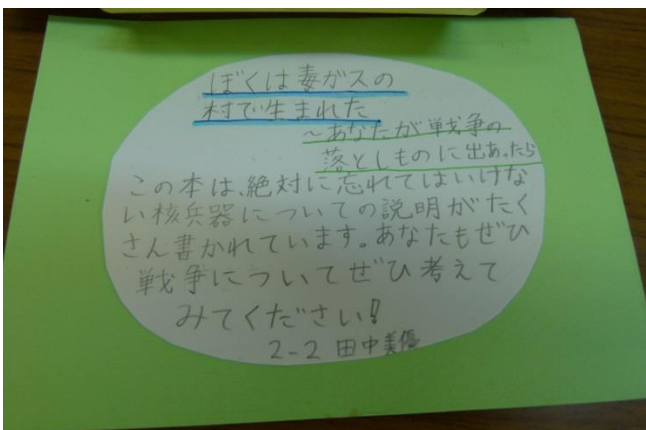 ぼくは毒ガスの
村で生まれた
～あなたが戦争の
落としものに出あったら
この本は、絶対に忘れてはいけな
い核兵器についての説明がたく
さん書かれています。あなたもぜひ
戦争についてぜひ考えて
みてください!
2-2 田中美優